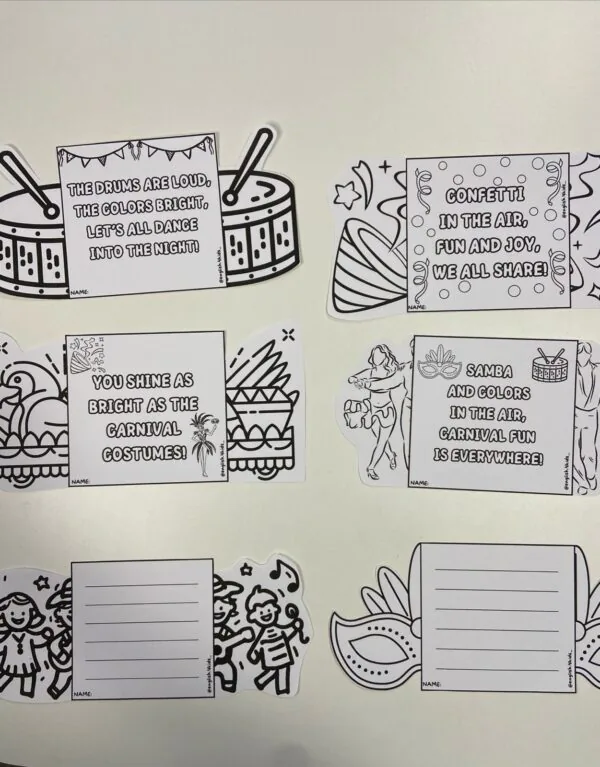 THE DRUMS ARE LOUD,
THE COLORS BRIGHT,
LET'S ALL DANCE
INTO THE NIGHT!
NAME:
CONFETTI
IN THE AIR,
FUN AND JOY,
WE ALL SHARE!
NAME:
YOU SHINE AS
BRIGHT AS THE
CARNIVAL
COSTUMES!
NAME:
SAMBA
AND COLORS
IN THE AIR,
CARNIVAL FUN
IS EVERYWHERE!
NAME:
NAME:
NAME: